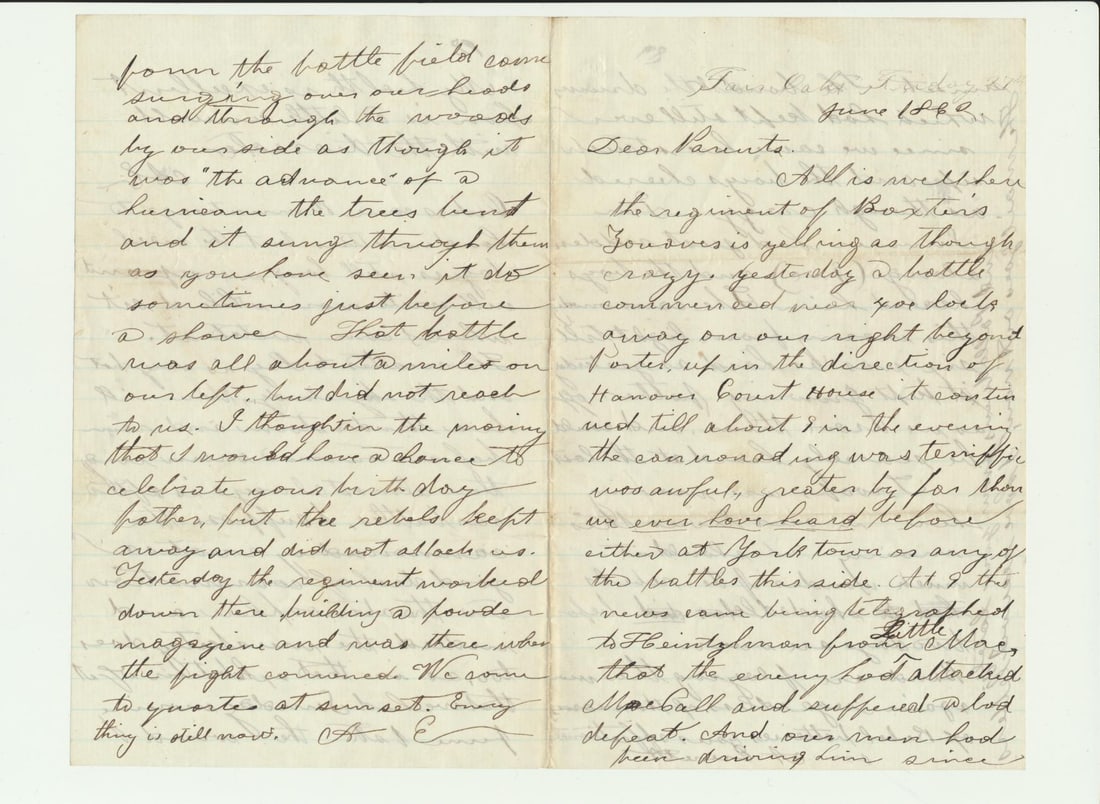 from the battle field came
surging over our heads
and through the woods
by our side as though it
was "the advance" of a
hurricane the trees bent
and it sung through them
as you have seen it do
sometimes just before
a shower That battle
was all about a miles on
our left, but did not reach
to us. I thought in the morning
that I would have a chance to
celebrate your birth day
father, but the rebels kept
away and did not attack us.
Yesterday the regiment worked
down there building a powder
magazine and was there when
the fight commenced. We came
to quarters at sunset. Every
thing is still now. A E
Fair Oaks, Friday
June 1862
Dear Parents.
All is well here
the regiment of Baxter's
Zouaves is yelling as though
crazy. yesterday a battle
commenced near 4 oe lock
away on our right beyond
Porter, up in the direction of
Hanover Court House it contin
ued till about 9 in the evening
the cannonading was terriffic
was awful, greater by far than
we ever have heard before
either at York town or any of
the battles this side. At 9 the
news came being telegraphed
to Heintzlman from Little Mac,
that the enemy had attacked
MacCall and suffered a bad
defeat. And our men had
been driving him since